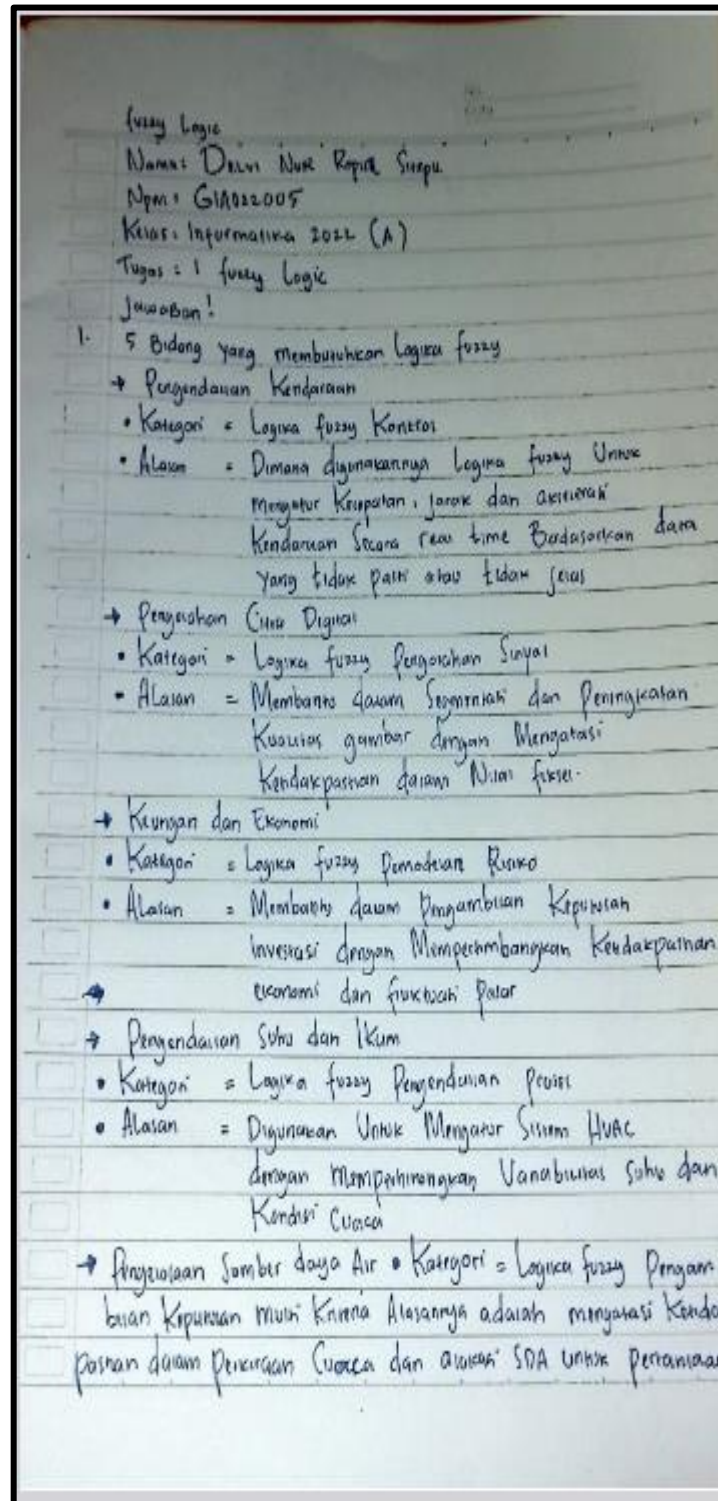 fuzzy Logic
Nama: Delvi Nur Ropiq Sitepu
Npm: G1A022005
Kelas: Informatika 2022 (A)
Tugas: 1 fuzzy Logic
Jawaban!
1. 5 Bidang yang membutuhkan Logika fuzzy
→ Pengendalian Kendaraan
• Kategori = Logika fuzzy Kontrol
• Alasan = Dimana digunakannya Logika fuzzy Untuk
mengatur Kecepatan, jarak dan akselerasi
Kendaraan Secara real time Berdasarkan data
yang tidak pasti atau tidak jelas
→ Pengolahan Citra Digital
• Kategori = Logika fuzzy Pengolahan Sinyal
• Alasan = Membantu dalam Segmentasi dan Peningkatan
Kualitas gambar dengan Mengatasi
Ketidakpastian dalam Nilai fiksel.
→ Keungan dan Ekonomi
• Kategori = Logika fuzzy Pemodelan Risiko
• Alasan = Membantu dalam Pengambilan Keputusan
investasi dengan Mempertimbangkan Ketidakpastian
→ ekonomi dan fluktuasi Pasar
→ Pengendalian Suhu dan Iklim
• Kategori = Logika fuzzy Pengendalian Presisi
• Alasan = Digunakan Untuk Mengatur Sistem HVAC
dengan memperhitungkan Variabilitas Suhu dan
Kondisi Cuaca
→ Pengelolaan Sumber daya Air • Kategori = Logika fuzzy Pengam
bilan Keputusan Multi Kriteria Alasannya adalah mengatasi Ketida
pastian dalam Perkiraan Cuaca dan alokasi SDA untuk pertaniaan